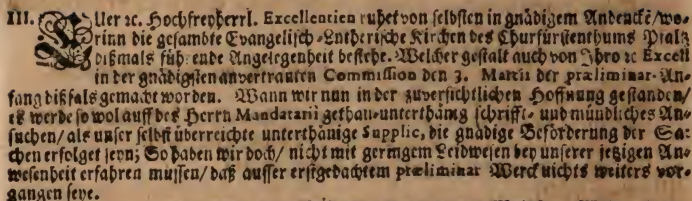 III. Euer ꝛc. Hochfreyherrl. Excellentien ruhet von selbsten in gnädigem Andencke/ wo-
rinn die gesambte Evangelisch-Lutherische Kirchen des Churfürstenthums Pfaltz
dißmals führende Angelegenheit bestehe. Welcher gestalt auch von Ihro ꝛc Excell
in der gnädigsten anvertrauten Commission den 3. Martii der præliminar-An-
fang dißfals gemacht worden. Wann wir nun in der zuversichtlichen Hoffnung gestanden/
es werde so wol auff des Herrn Mandatarii gethan-unterthänig schrifft- und mündliches An-
suchen/ als unser selbst überreichte unterthänige Supplic, die gnädige Beförderung der Sa-
chen erfolget seyn; So haben wir doch/ nicht mit geringem Leidwesen bey unserer jetzigen An-
wesenheit erfahren müssen/ daß ausser erstgedachtem præliminar Werck nichts weiters vor-
gangen seye.